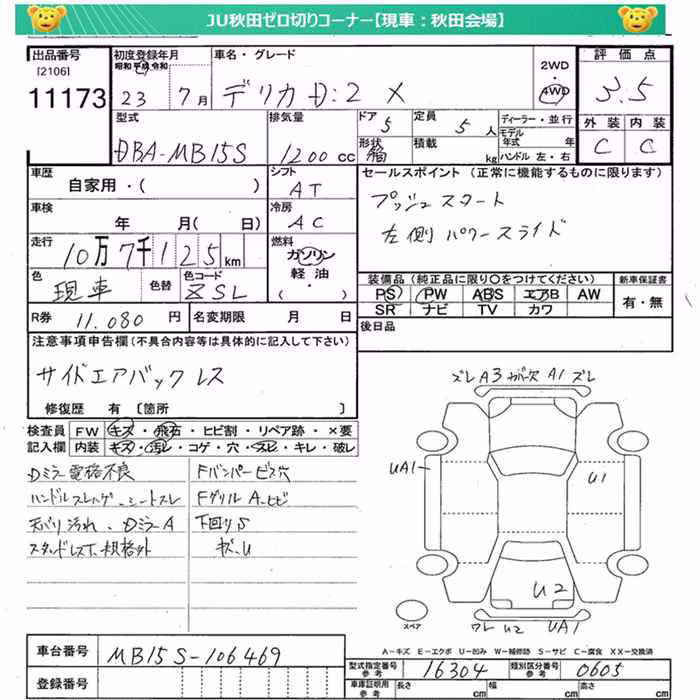 JU秋田ゼロ切りコーナー【現車：秋田会場】
出品番号
[2106]
11173
初度登録年月
昭和 平成 令和
23 7月
車名・グレード
デリカ D:2 X
2WD
・
4WD
評価点
3.5
外装 内装
C C
型式
DBA-MB15S
排気量
1200 cc
ドア 5
形状 箱
定員 5 人
積載 kg
ディーラー・並行
モデル年式 年
ハンドル 左・右
車歴
自家用・( )
シフト
AT
車検
年 月( 日)
冷房
AC
走行
10万7千125 km
燃料
ガソリン
軽油・
( )
色
現車
色替
色コード
ZSL
R券 11.080 円
名変期限 月 日
セールスポイント（正常に機能するものに限ります）
プッシュスタート
左側パワースライド
装備品（純正品に限り〇をつけてください）
PS PW ABS エアB AW
SR ナビ TV カワ
新車保証書
有・無
後日品
注意事項申告欄(不具合内容等は具体的に記入して下さい)
サイドエアバックレス
修復歴 有 [箇所 ]
検査員記入欄
FW キズ・飛石・ヒビ割・リペア跡・×要
内装 キズ・汚レ・コゲ・穴・スレ・キレ・破レ
Dミラー電格不良
ハンドルスレハゲ、シートスレ
天バリ汚れ、DミラーA
スタッドレスT、規格外
Fバンパービス穴
FグリルA、ヒビ
下回りS
キズ、U
ズレ A3 ガバ欠 A1 ズレ
UA1
U1
U2
ワレ U2 UA1
スペア
A−キズ E−エクボ U−凹み W−補修跡 S−サビ C−腐食 XX−交換済
車台番号
MB15S-106469
登録番号
型式指定番号
参考
16304
類別区分番号
参考
0605
車庫証明用
参考
長さ cm
幅 cm
高さ cm